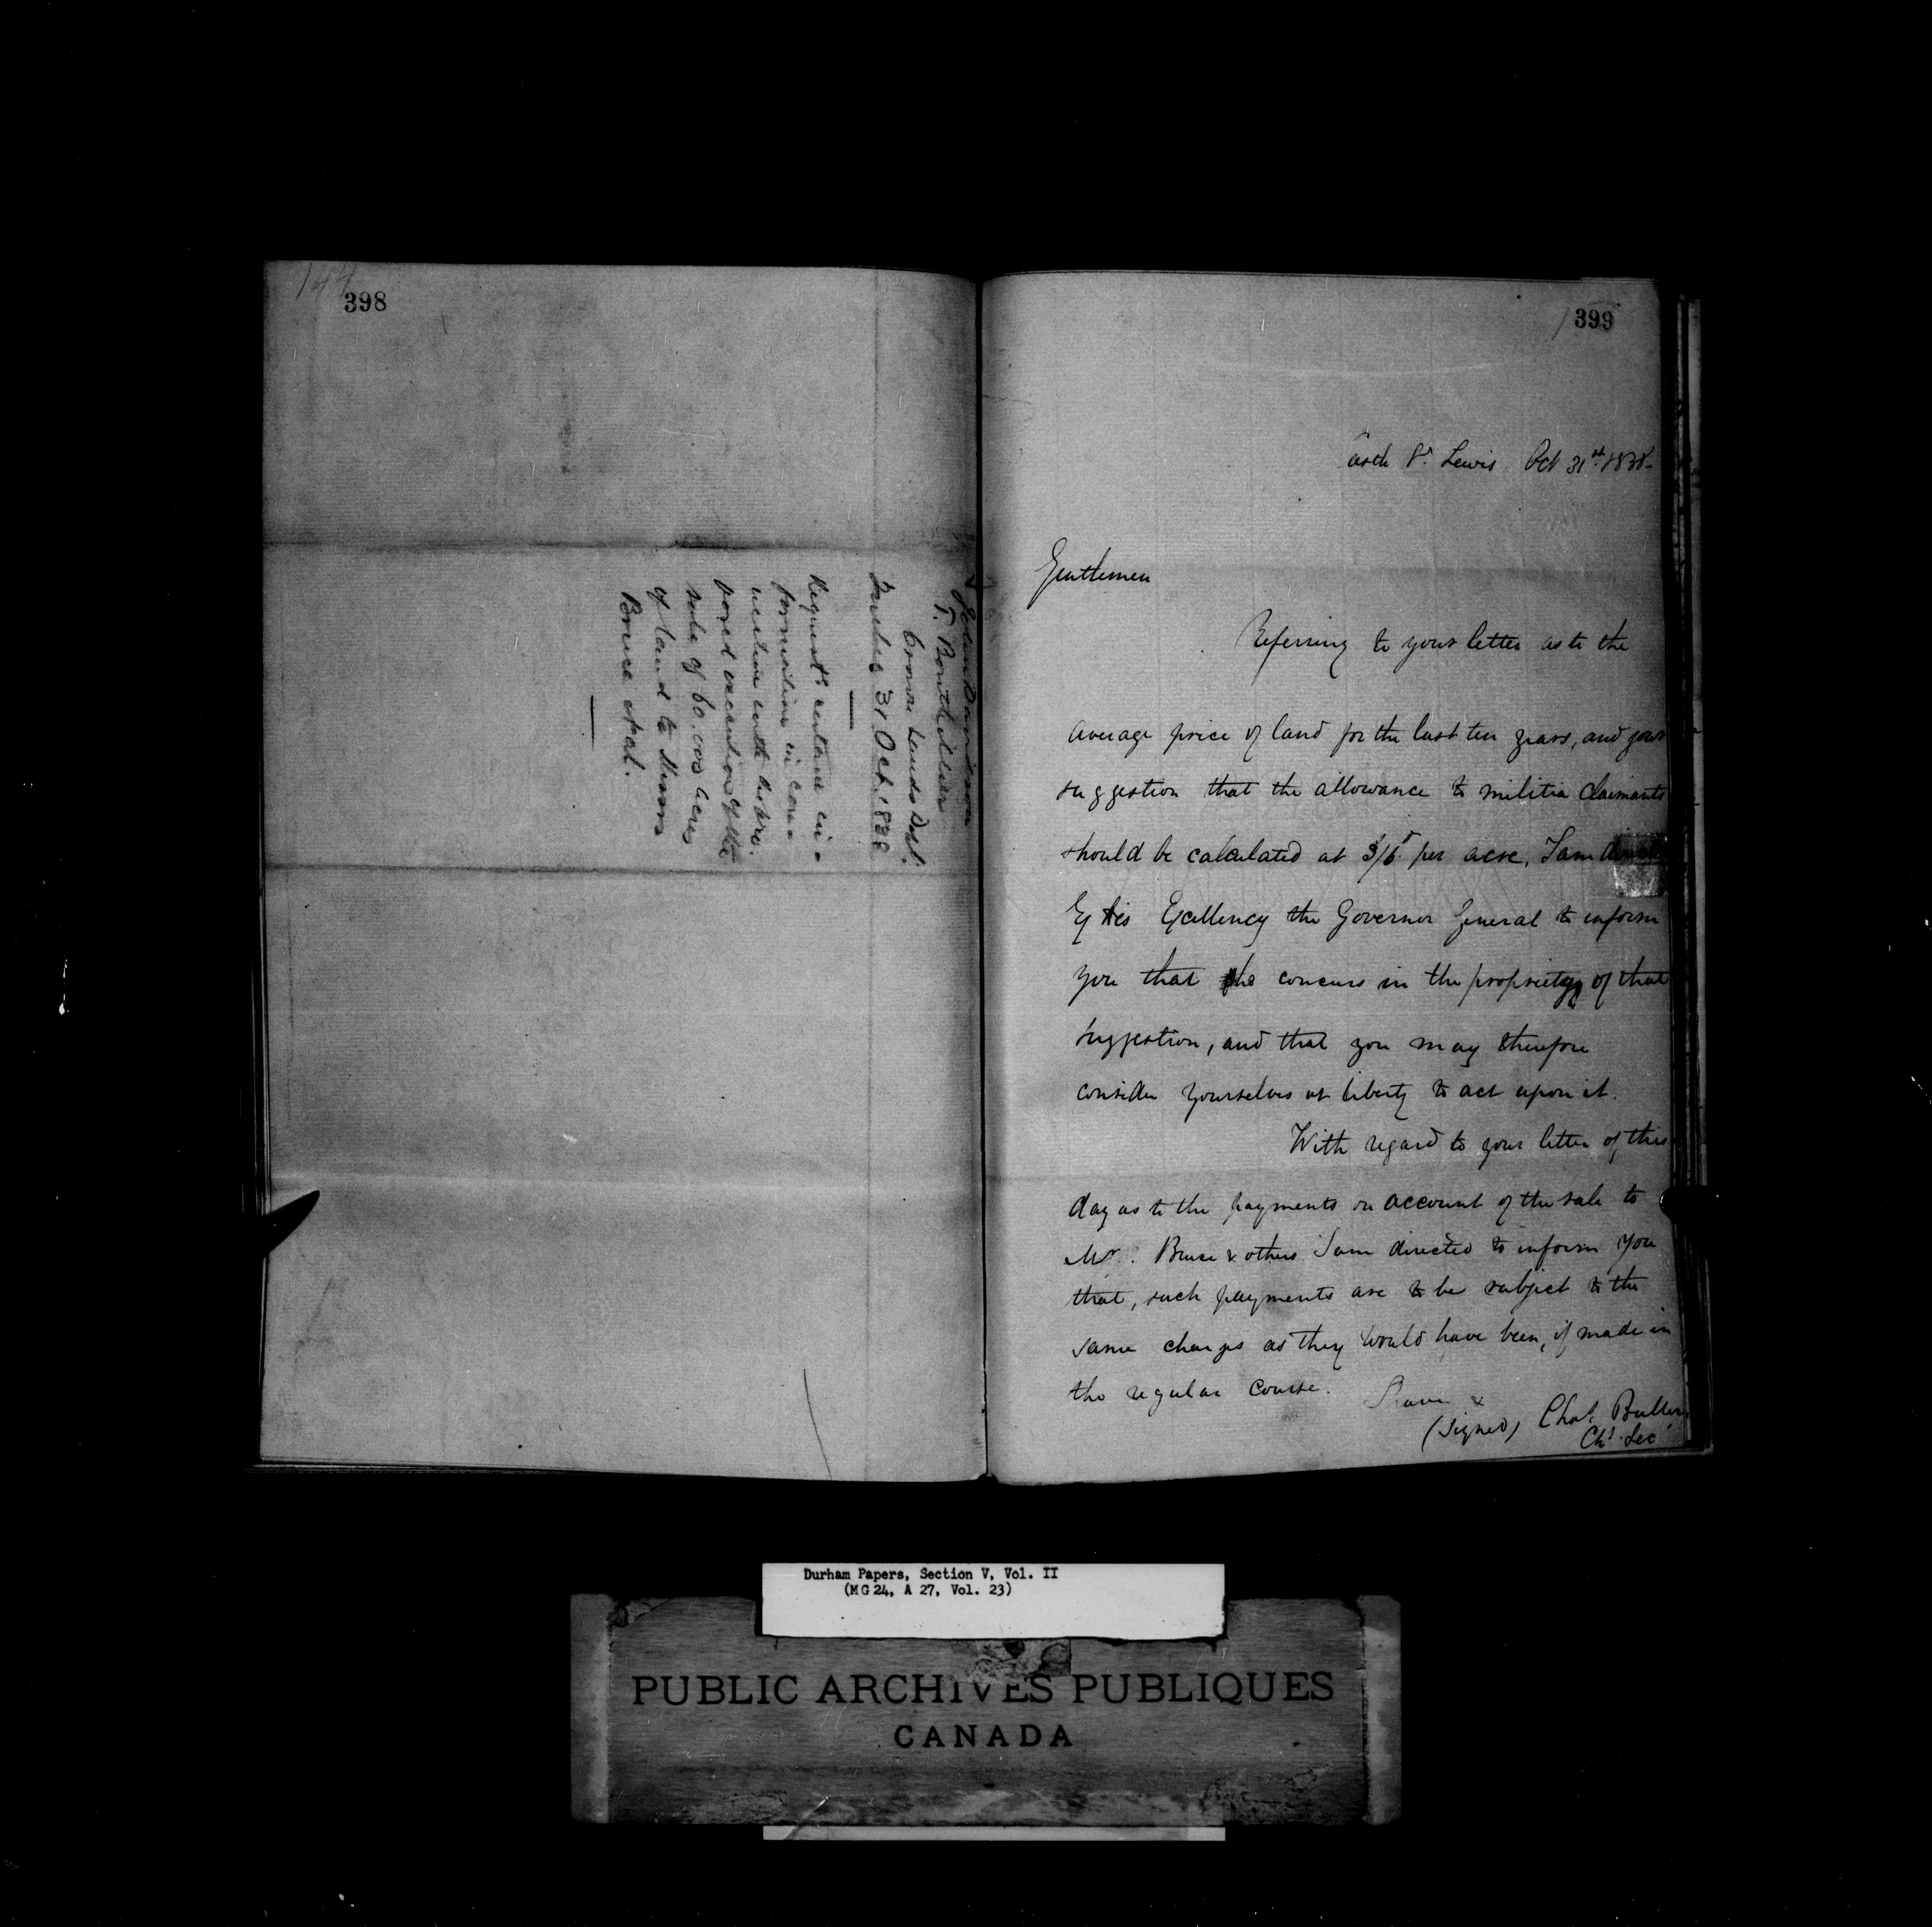 144
398
John Davidson
T. Bouthillier
Crown Lands Dept.
Quebec 31 Oct. 1838
Requests certain in-
formation in con-
nection with the pro-
posed execution of the
sale of 60.000 acres
of land to Messrs
Bruce et al.
399
Castle St. Lewis Oct 31st 1838-
Gentlemen
Referring to your letter as to the
average price of land for the last ten years, and your
suggestion that the allowance to militia claimants
should be calculated at per acre, I am
by His Excellency the Governor General to inform
you that he concurs in the propriety of that
suggestion, and that you may therefore
consider yourselves at liberty to act upon it.
With regard to your letter of this
day as to the payments on account of the sale to
Mr. Bruce & others I am directed to inform you
that, such payments are to be subject to the
same charges as they would have been, if made in
the regular course.
I have &
(Signed) Chas. Buller
Chf. Sec
Durham Papers, Section V, Vol. II
(MG 24, A 27, Vol. 23)
PUBLIC ARCHIVES PUBLIQUES
CANADA